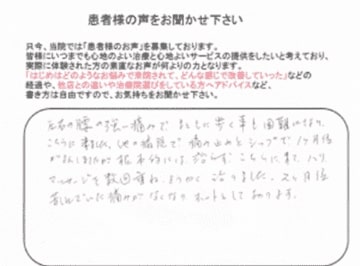 患者様の声をお聞かせ下さい
只今、当院では「患者様のお声」を募集しております。
皆様にいつまでも心地のよい治療と心地よいサービスの提供をしたいと考えており、
実際に体験された方の素直なお声が何よりの力となります。
「はじめはどのようなお悩みで来院されて、どんな感じで改善していった」などの
経過や、他店との違いや治療院選びをしている方へアドバイスなど、
書き方は自由ですので、お気持ちをお聞かせ下さい。
左右の腰の強い痛みで まともに歩く事も困難になり
こちらに来ました。他の病院で 痛み止めとシップで1ヶ月位
が 根本的には 治らず こちらに来て ハリ
マッサージを数回重ね、ようやく 治りました。2ヶ月位
悩んでいた痛みがなくなり ホットして おります。